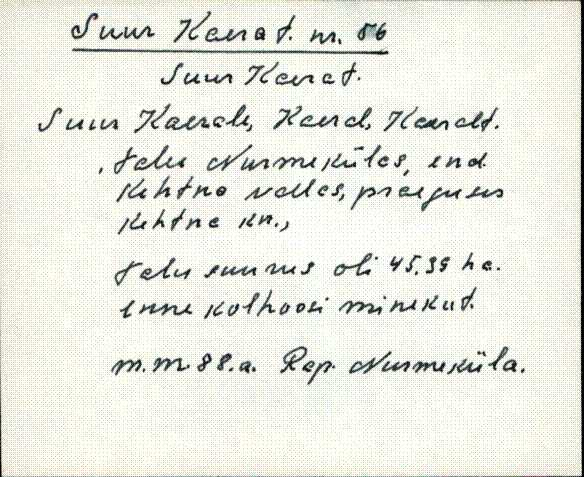 Suur Kaerat. nr. 56
Suur Kaerat.
Suur Kaerale, Kaeral, Kaeralt.
, talu Nurmekülas, end.
Kehtna vallas, praeguses
Kehtna kn.,
talu suurus oli 45,39 ha.
enne kolhoosi minekut.
m.m. 88.a. Rap. Nurmeküla.